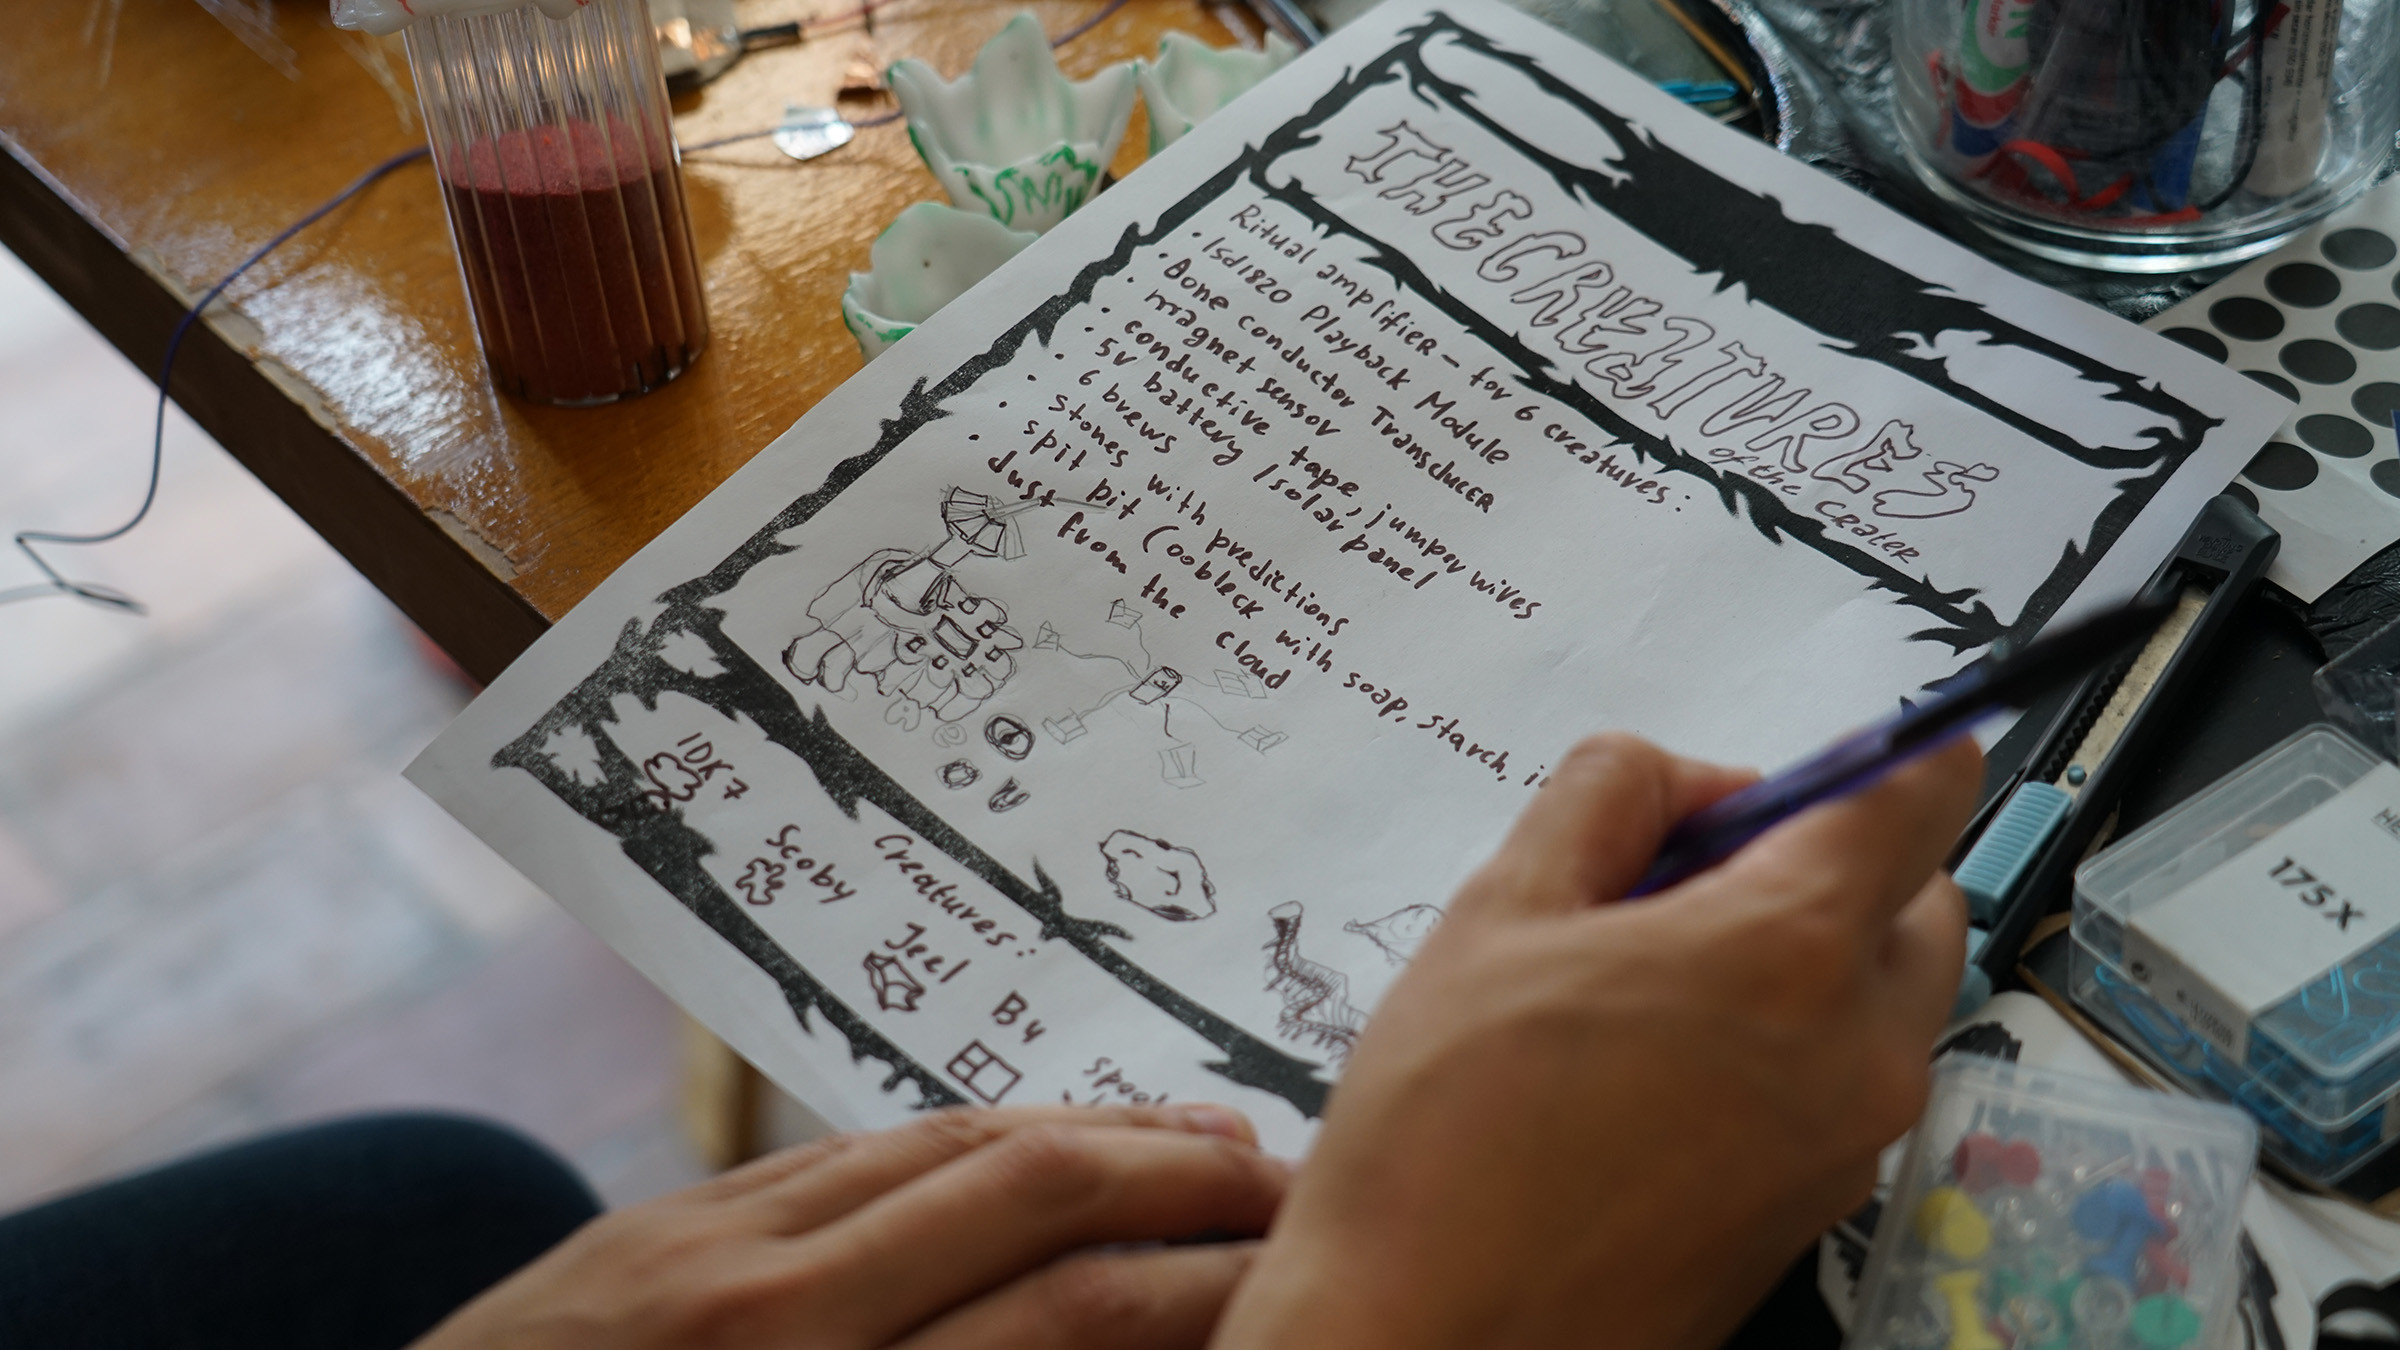 THE CREATURES
of the Crater
Ritual amplifier – for 6 creatures:
• Isd1820 Playback Module
• Bone conductor Transducer
• magnet sensor
• conductive tape, jumper wives
• 5V battery / solar panel
• 6 brews
• stones with predictions
• spit pit (oobleck with soap, starch,
• dust from the cloud
Creatures:
IDK7
Scoby
Jeel
By
175X